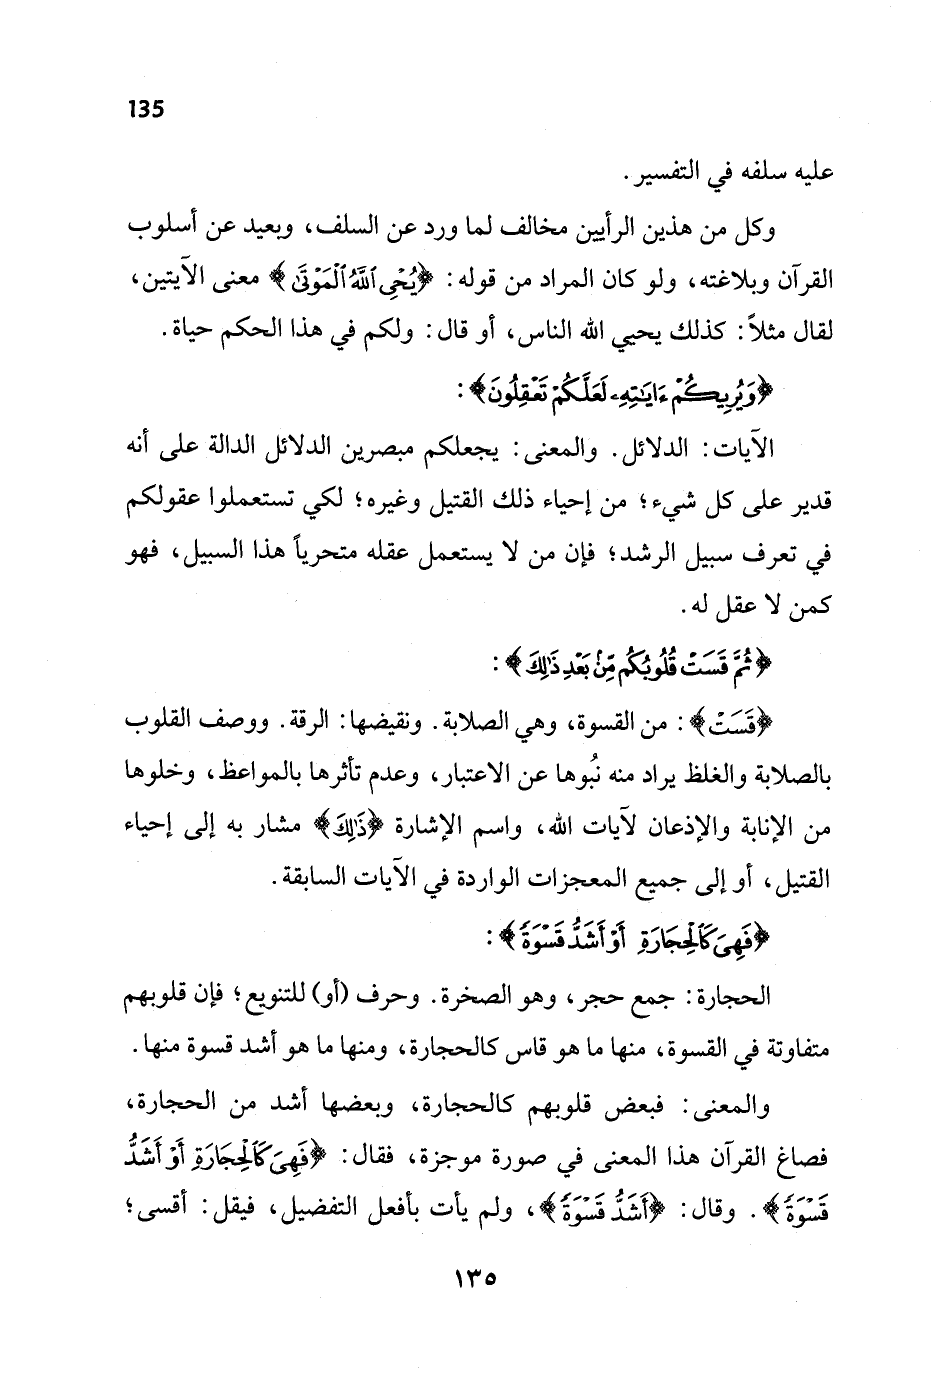 135
عليه سلفه في التفسير.
وكل من هذين الرأيين مخالف لما ورد عن السلف، وبعيد عن أسلوب
القرآن وبلاغته، ولو كان المراد من قوله: ﴿يُحْىِ ٱللَّهُ ٱلْمَوْتَىٰ﴾ معنى الآيتين،
لقال مثلاً: كذلك يحيي الله الناس، أو قال: ولكم في هذا الحكم حياة.
﴿وَيُرِيكُمْ ءَايَٰتِهِۦ لَعَلَّكُمْ تَعْقِلُونَ﴾:
الآيات: الدلائل. والمعنى: يجعلكم مبصرين الدلائل الدالة على أنه
قدير على كل شيء؛ من إحياء ذلك القتيل وغيره؛ لكي تستعملوا عقولكم
في تعرف سبيل الرشد؛ فإن من لا يستعمل عقله متحرياً هذا السبيل، فهو
كمن لا عقل له.
﴿ثُمَّ قَسَتْ قُلُوبُكُم مِّنۢ بَعْدِ ذَٰلِكَ﴾:
﴿قَسَتْ﴾: من القسوة، وهي الصلابة. ونقيضها: الرقة. ووصف القلوب
بالصلابة والغلظ يراد منه نُبُوها عن الاعتبار، وعدم تأثرها بالمواعظ، وخلوها
من الإنابة والإذعان لآيات الله، واسم الإشارة ﴿ذَٰلِكَ﴾ مشار به إلى إحياء
القتيل، أو إلى جميع المعجزات الواردة في الآيات السابقة.
﴿فَهِىَ كَٱلْحِجَارَةِ أَوْ أَشَدُّ قَسْوَةً﴾:
الحجارة: جمع حجر، وهو الصخرة. وحرف (أو) للتنويع؛ فإن قلوبهم
متفاوتة في القسوة، منها ما هو قاس كالحجارة، ومنها ما هو أشد قسوة منها.
والمعنى: فبعض قلوبهم كالحجارة، وبعضها أشد من الحجارة،
فصاغ القرآن هذا المعنى في صورة موجزة، فقال: ﴿فَهِىَ كَٱلْحِجَارَةِ أَوْ أَشَدُّ
قَسْوَةً﴾. وقال: ﴿أَشَدُّ قَسْوَةً﴾، ولم يأت بأفعل التفضيل، فيقل: أقسى؛
١٣٥